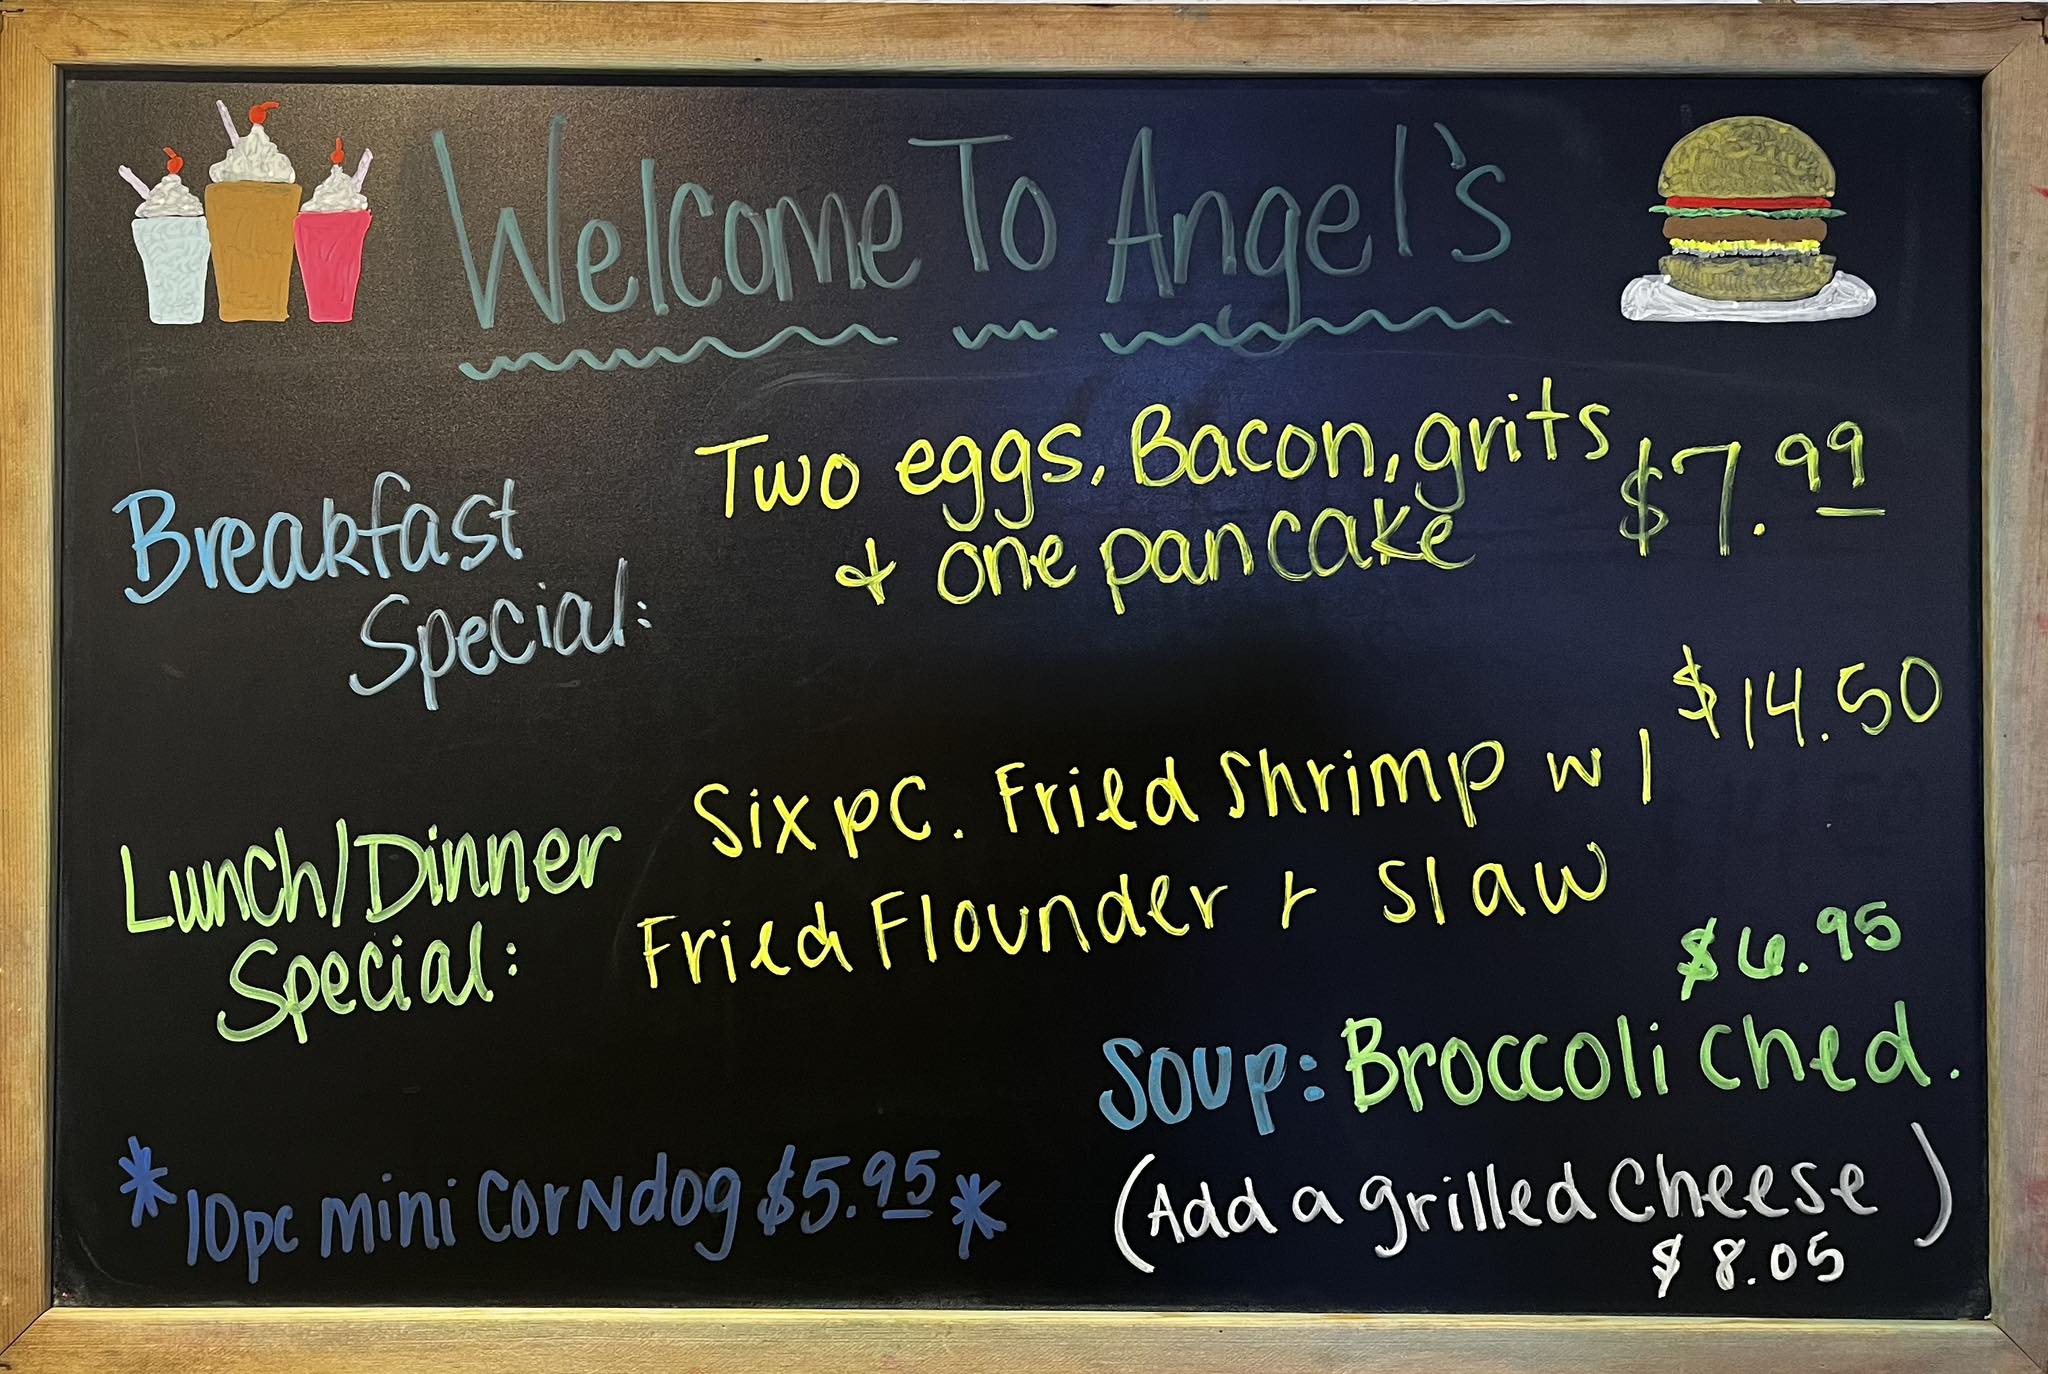 Welcome To Angel's
Breakfast
Special:
Two eggs, Bacon, grits
& one pancake
$7.99
Lunch/Dinner
Special:
$14.50
Six pc. Fried Shrimp w/
Fried Flounder + Slaw
$6.95
Soup: Broccoli Ched.
(Add a grilled Cheese)
$8.05
*10pc mini Corndog $5.95*